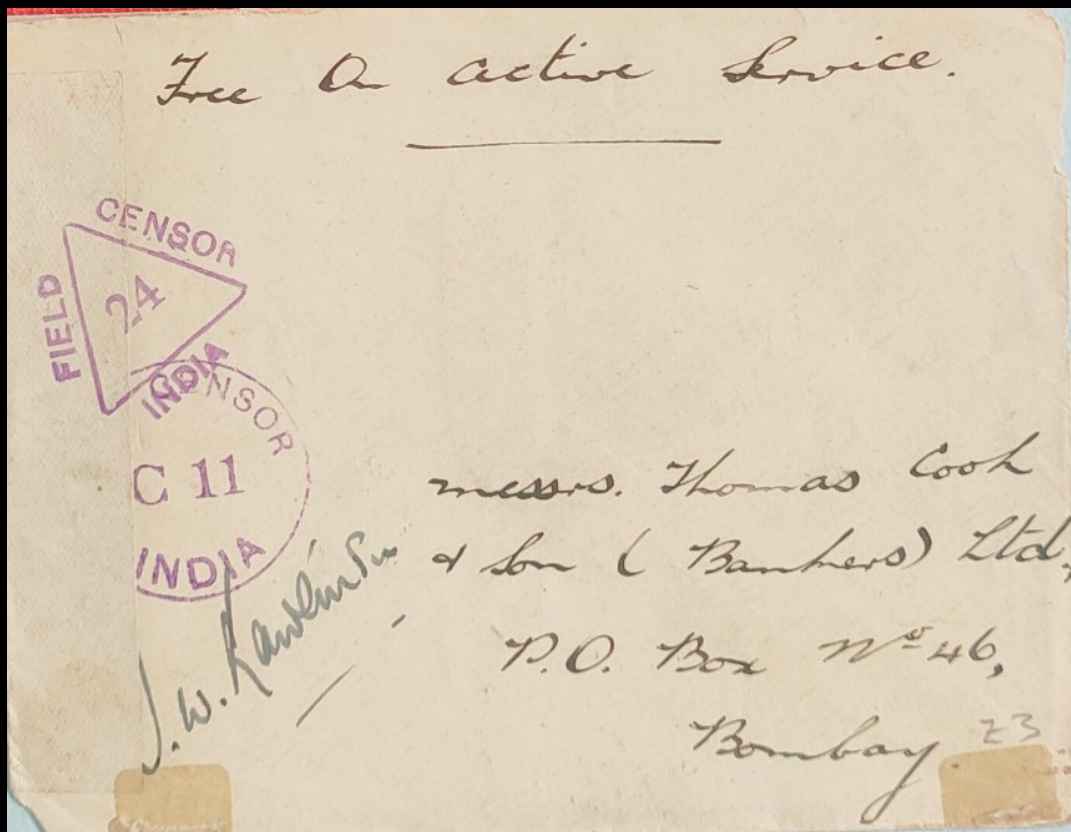 Free On active Service.
CENSOR
FIELD
24
INDIA
CENSOR
C 11
INDIA
J. W. Rawlinson
messrs. Thomas Cook
& Son ( Bankers) Ltd.,
P.O. Box Nº 46,
Bombay
23